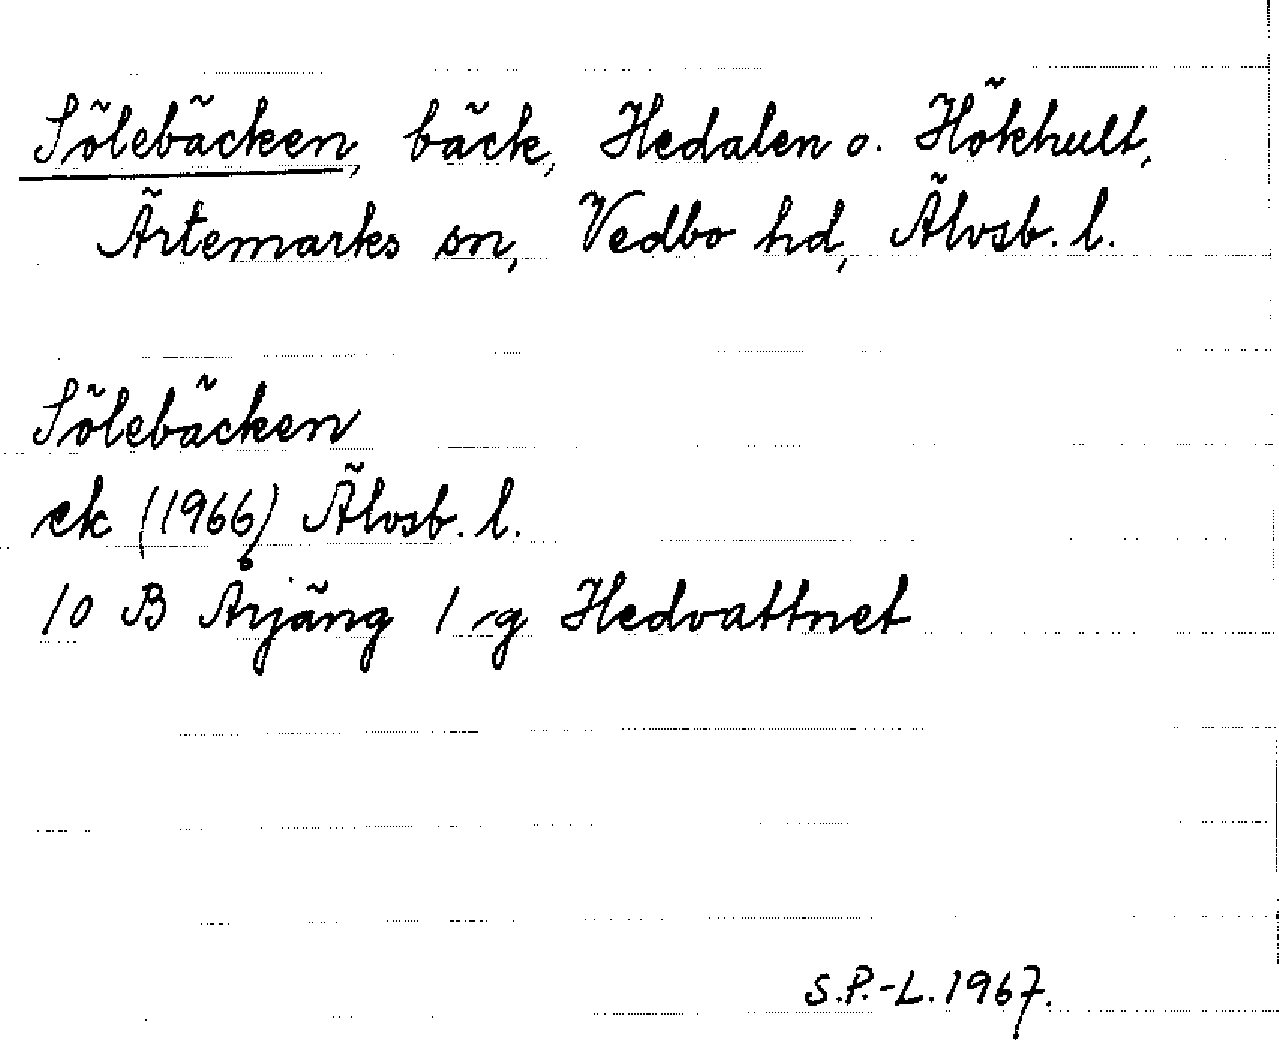 Sölebäcken, bäck, Hedalen o. Hökhult,
Ärtemarks sn, Vedbo hd, Älvsb. l.
Sölebäcken
ek (1966) Älvsb. l.
10 B Årjäng 1 g Hedvattnet
S.P.-L. 1967.